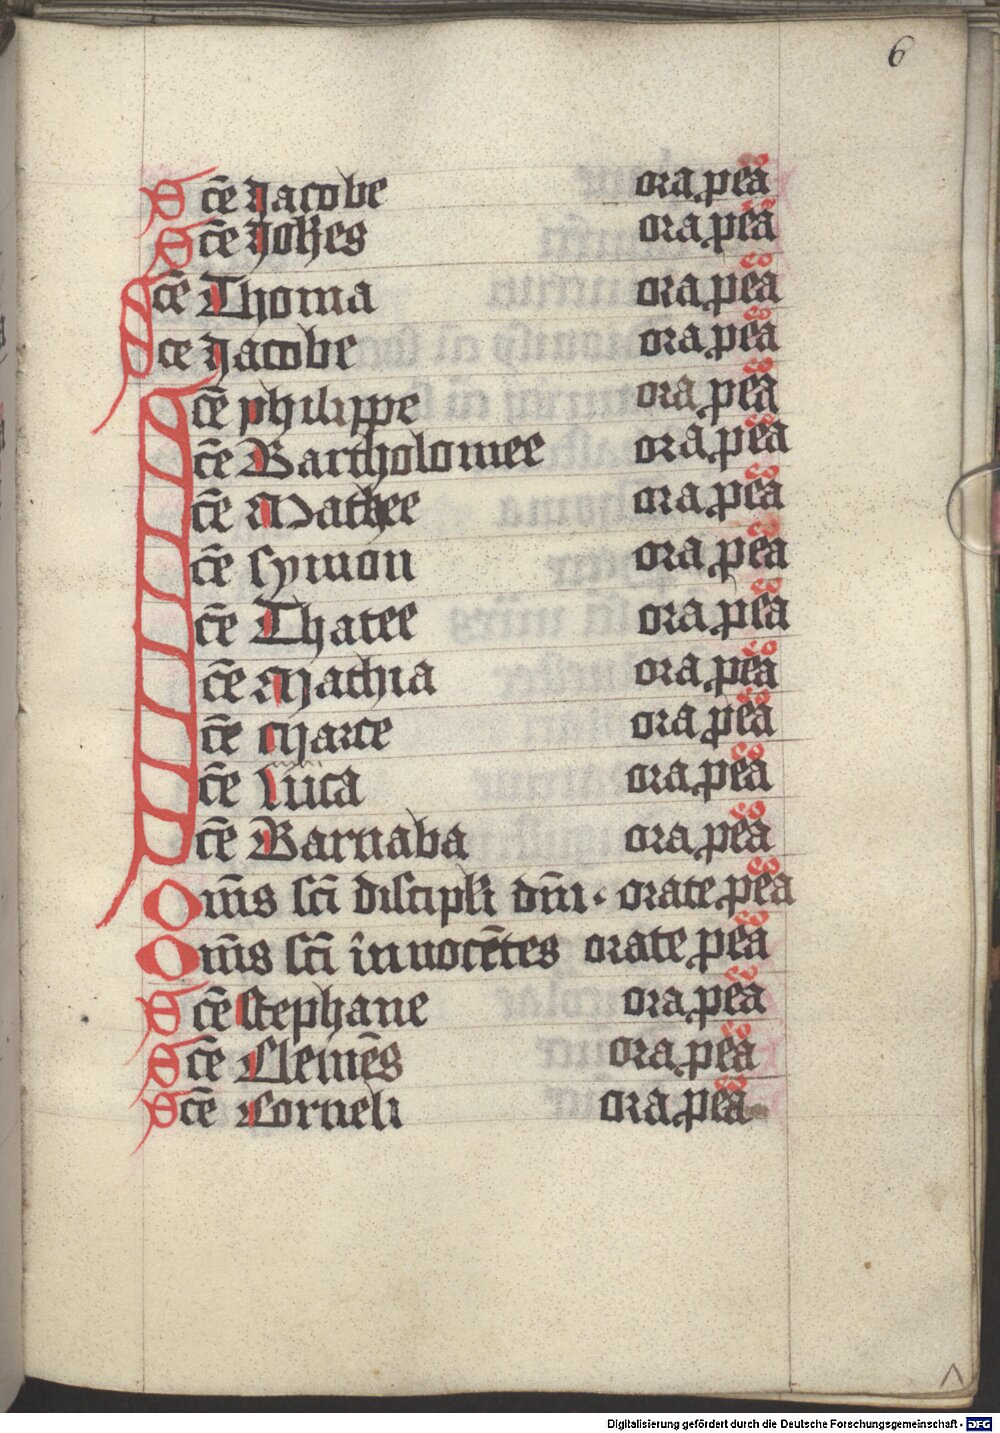 6
Sce̅ Jacobe ora p̱ eā
Sce̅ Joh̅es ora p̱ eā
Sce̅ Thoma ora p̱ eā
Sce Jacobe ora p̱ eā
Sce̅ philippe ora p̱ eā
Sce̅ Bartholomee ora p̱ eā
Sce̅ Mathee ora p̱ eā
Sce̅ Symon ora p̱ eā
Sce̅ Thatee ora p̱ eā
Sce̅ Mathia ora p̱ eā
Sce̅ Marce ora p̱ eā
Sce̅ Luca ora p̱ eā
Sce̅ Barnaba ora p̱ eā
Om̅s sci̅ discipl̅i dn̅i · orate p̱ eā
Om̅s sci̅ innoce̅tes orate p̱ eā
Sce̅ Stephane ora p̱ eā
Sce̅ Cleme̅s ora p̱ eā
Sce̅ Corneli ora p̱ eā
Digitalisierung gefördert durch die Deutsche Forschungsgemeinschaft - DFG